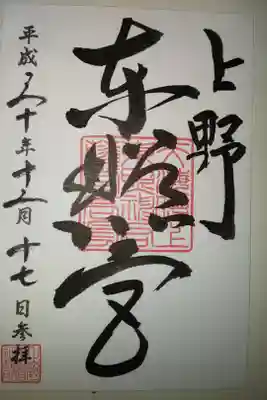 上野
東照宮
平成三十年十二月十七日参拝